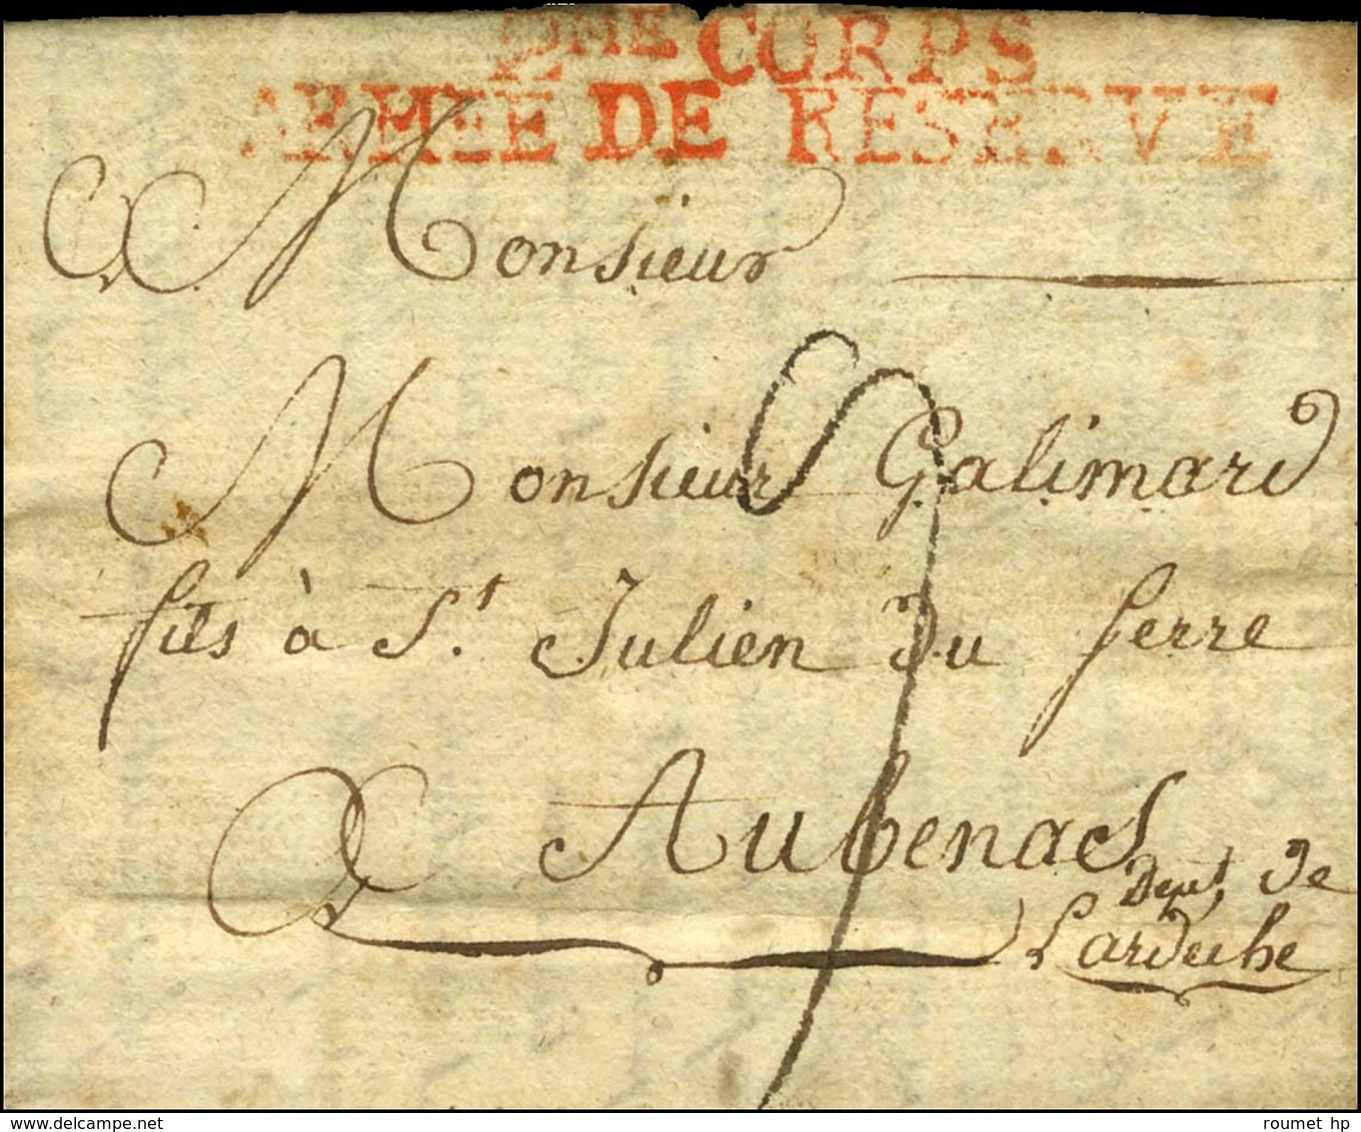 2ME CORPS
ARMÉE DE RESERVE
Monsieur
Monsieur Galimard
fils à St. Julien du Serre
Aubenas
Dept. de
Lardeche
delcampe.net
roumet hp